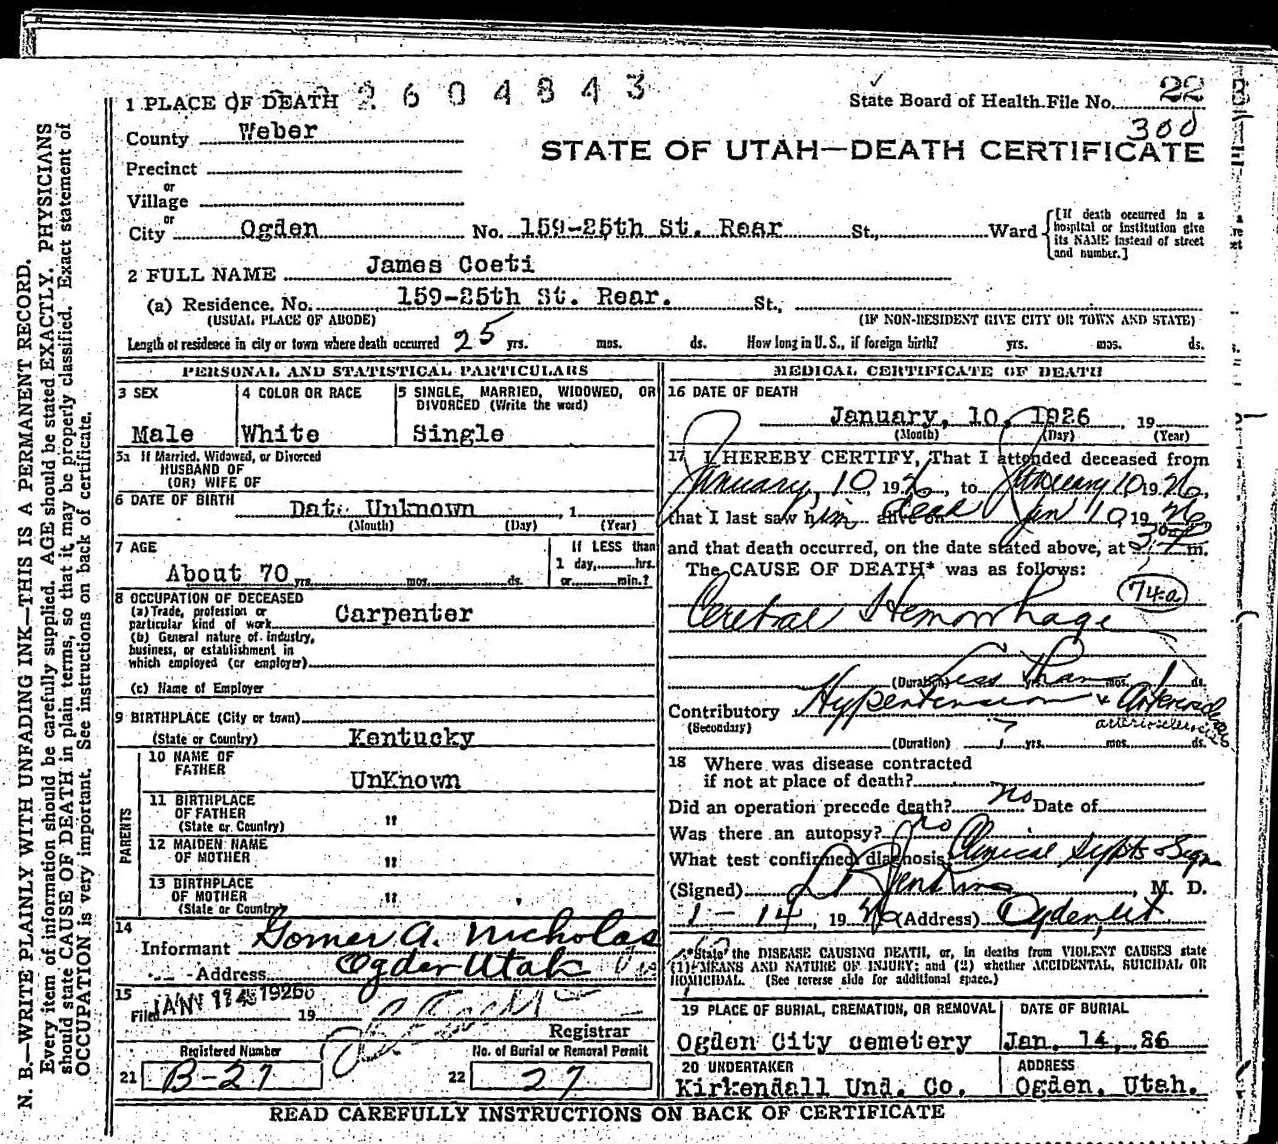 1 PLACE OF DEATH 2604843
State Board of Health File No. 22
300
County Weber
STATE OF UTAH—DEATH CERTIFICATE
Precinct
or
Village
or
City Ogden No. 159-25th St. Rear St., Ward [If death occurred in a hospital or institution give its NAME instead of street and number.]
2 FULL NAME James Coeti
(a) Residence. No. 159-25th St. Rear. St.,
(USUAL PLACE OF ABODE) (IF NON-RESIDENT GIVE CITY OR TOWN AND STATE)
Length of residence in city or town where death occurred 25 yrs. mos. ds. How long in U. S., if foreign birth? yrs. mos. ds.
PERSONAL AND STATISTICAL PARTICULARS
3 SEX
Male
4 COLOR OR RACE
White
5 SINGLE, MARRIED, WIDOWED, OR
DIVORCED (Write the word)
Single
5a If Married, Widowed, or Divorced
HUSBAND OF
(OR) WIFE OF
6 DATE OF BIRTH Date Unknown , 1
(Month) (Day) (Year)
7 AGE
About 70 yrs. mos. ds.
If LESS than
1 day, hrs.
or min.?
8 OCCUPATION OF DECEASED
(a) Trade, profession or
particular kind of work Carpenter
(b) General nature of industry,
business, or establishment in
which employed (or employer)
(c) Name of Employer
9 BIRTHPLACE (City or town)
(State or Country) Kentucky
PARENTS
10 NAME OF
FATHER UnKnown
11 BIRTHPLACE
OF FATHER
(State or Country) "
12 MAIDEN NAME
OF MOTHER "
13 BIRTHPLACE
OF MOTHER
(State or Country) "
14
Informant Gomer A. Nicholas
Address Ogden Utah
15
Filed JAN 14 1926 19
Registrar
Registered Number
21 B-27
No. of Burial or Removal Permit
22 27
MEDICAL CERTIFICATE OF DEATH
16 DATE OF DEATH
January, 10, 1926 , 19
(Month) (Day) (Year)
17 I HEREBY CERTIFY, That I attended deceased from
January 10 1926, to January 10 1926,
that I last saw him alive on dead Jan 10 1926
and that death occurred, on the date stated above, at 3 m.
The CAUSE OF DEATH* was as follows:
74-a
Cerebral Hemorrhage
(Duration) Less than yrs. mos. ds.
Contributory Hypertension + Arterioscl
(Secondary) arteriosclerosis
(Duration) ? yrs. mos. ds.
18 Where was disease contracted
if not at place of death?
Did an operation precede death? no Date of
Was there an autopsy? no
What test confirmed diagnosis Clinical Sypts & Sign
(Signed) Jenkins , M. D.
1-14, 1926 (Address) Ogden, Ut
*State the DISEASE CAUSING DEATH, or, in deaths from VIOLENT CAUSES state
(1) MEANS AND NATURE OF INJURY; and (2) whether ACCIDENTAL, SUICIDAL OR
HOMICIDAL. (See reverse side for additional space.)
19 PLACE OF BURIAL, CREMATION, OR REMOVAL
Ogden City cemetery
DATE OF BURIAL
Jan. 14, 26
20 UNDERTAKER
Kirkendall Und. Co.
ADDRESS
Ogden, Utah.
READ CAREFULLY INSTRUCTIONS ON BACK OF CERTIFICATE
N. B.—WRITE PLAINLY WITH UNFADING INK—THIS IS A PERMANENT RECORD.
Every item of information should be carefully supplied. AGE should be stated EXACTLY. PHYSICIANS
should state CAUSE OF DEATH in plain terms, so that it may be properly classified. Exact statement of
OCCUPATION is very important. See instructions on back of certificate.